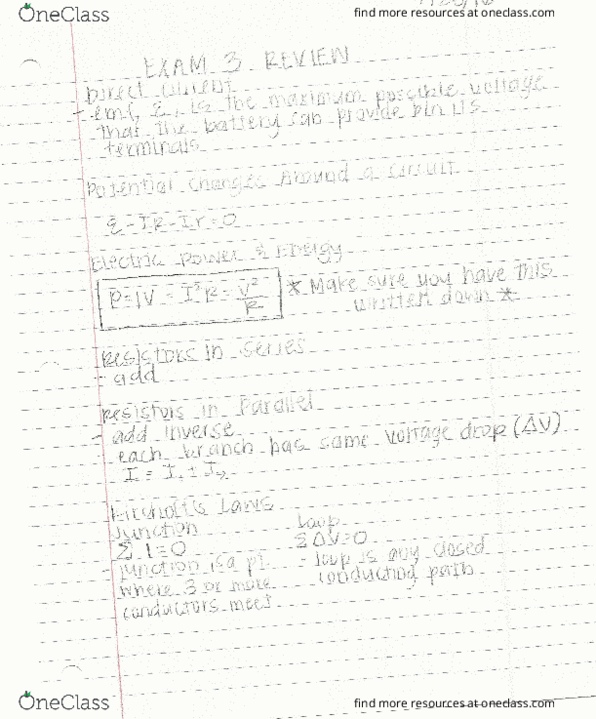 OneClass
find more resources at oneclass.com
EXAM 3 REVIEW
Direct Current
- emf, ε, is the maximum possible voltage
that the battery can provide b/n its
terminals
Potential Changes Around a circuit
ε - IR - Ir = 0
Electric Power & Energy
P=IV = I²R = V²/R * Make sure you have this
written down *
Resistors in Series
- add
Resistors in Parallel
- add inverse
each branch has same voltage drop (ΔV)
I = I₁ + I₂
Kirchoff's Laws
Junction Loop
Σ I = 0 Σ ΔV = 0
- junction is a pt. - loop is any closed
where 3 or more conducting path
conductors meet
OneClass
find more resources at oneclass.com